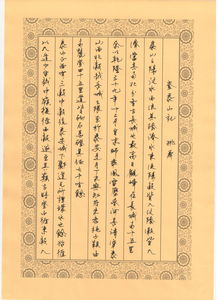 登泰山記 姚鼐
泰山之陽汶水西流其陰濟水東流陽穀皆入汶陰穀皆入
濟當其南北分者古長城也最高日觀峰在長城南十五里
余以乾隆三十九年十二月自京師乘風雪歷齊河長清穿泰
山西北穀越長城之限至於泰安是月丁未與知府朱孝純子潁由
南麓登四十五里道皆砌石為磴其級七千有餘
泰山正南面有三穀中穀繞泰安城下酈道元所謂環水也餘始循
以入道少半越中嶺復循西穀遂至其巔古時登山循東穀入